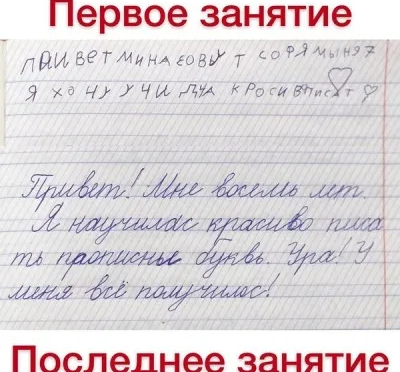 Первое занятие
ПРИВЕТ МИНА ЕОВУТ СОФЯ МЫНЯ 7
Я ХОЧУ УЧИДЦА КРОСИВ ПИСАТ
Привет! Мне восемь лет.
Я научилас красиво писа
ть прописные буквы. Ура! У
меня всё получилос!
Последнее занятие